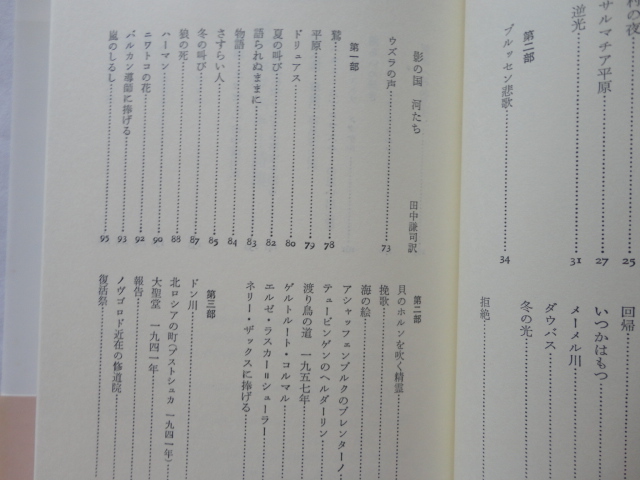 村の夜
サルマチア平原……27
逆光……31
第二部
プルッセン悲歌……34
回帰
いつかはもつ
メーメル川
ダウバス
冬の光
拒絶
影の国　河たち　田中謙司訳
ウズラの声……73
第一部
鷲……78
平原……79
ドリュアス……80
夏の叫び……82
語られぬままに……83
物語……84
さすらい人……85
冬の叫び……87
狼の死……88
ハーマン……90
ニワトコの花……92
バルカン導師に捧げる……93
嵐のしるし……95
第二部
貝のホルンを吹く精霊
挽歌
海の絵
アシャッフェンブルクのブレンターノ
テュービンゲンのヘルダーリン
渡り鳥の道　一九五七年
ゲルトルート・コルマル
エルゼ・ラスカー＝シューラー
ネリー・ザックスに捧げる
第三部
ドン川
北ロシアの町（プストシュカ　一九四一年）
大聖堂　一九四一年
報告
ノヴゴロド近在の修道院
復活祭